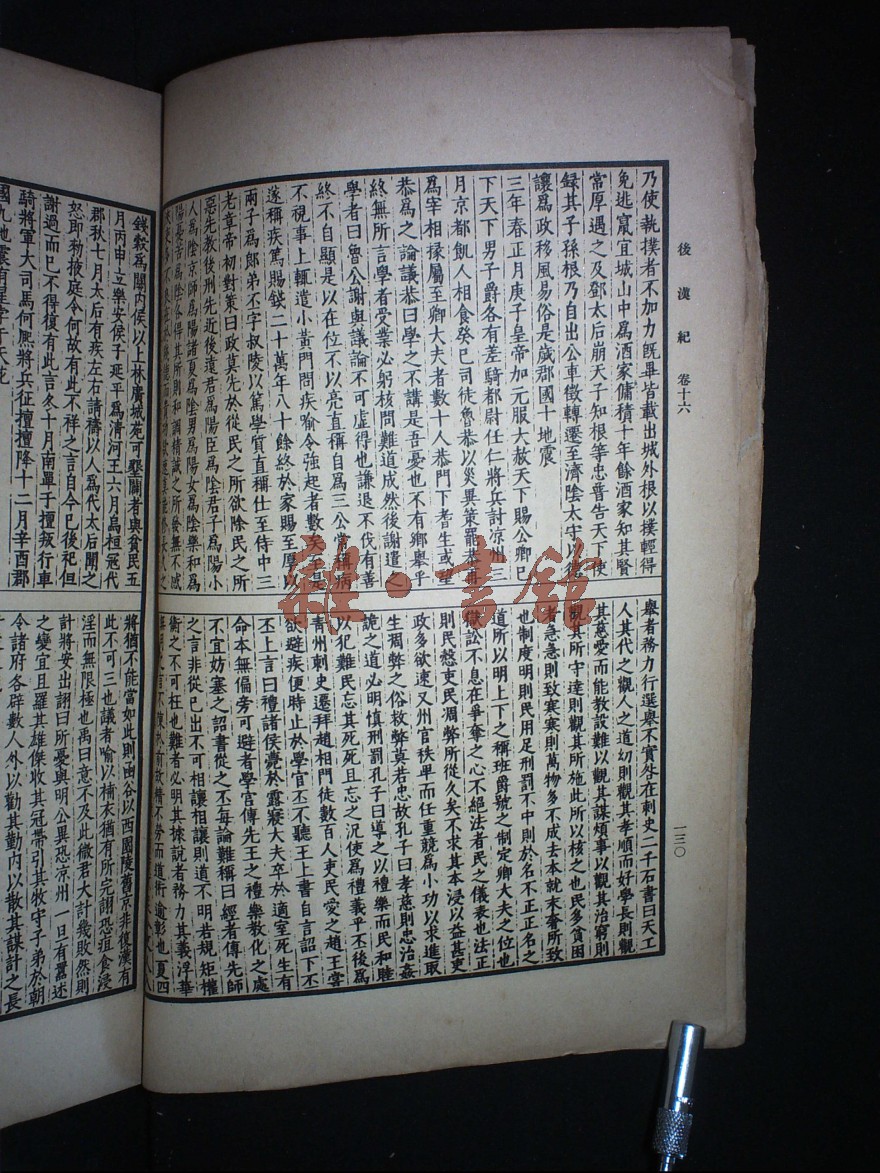 後漢紀 卷十六
一三〇
乃使執撲者不加力旣畢皆載出城外根以撲輕得
免逃竄宜城山中爲酒家傭積十年餘酒家知其賢
當厚遇之及鄧太后崩天子知根等忠普告天下使
録其子孫根乃自出公車徵轉遷至濟陰太守以德
讓爲政移風易俗是歲郡國十地震
三年春正月庚子皇帝加元服大赦天下賜公卿已
下天下男子爵各有差騎都尉任仁將兵討涼州三
月京都飢人相食癸巳司徒魯恭以災異策罷恭再
爲宰相掾屬至卿大夫者數十人恭門下耆生或望
恭爲之論議恭曰學之不講是吾憂也不有鄉舉乎
終無所言學者受業必躬核問難道成然後謝遣之
學者曰魯公謝與議論不可虛得也謙退不伐有善
終不自顯是以在位不以亮直稱自爲三公常稱病
不視事上輒遣小黃門問疾喻令強起者數矣至是
遂稱疾篤賜錢二十萬年八十餘終於家賜至厚以
兩子爲郎弟丕字叔陵以篤學質直稱仕至侍中三
老章帝初對策曰政莫先於從民之所欲除民之所
惡先教後刑先近後遠君爲陽臣爲陰君子爲陽小
人爲陰京師爲陽諸夏爲陰男爲陽女爲陰樂和爲
陽憂苦爲陰各得其所則和調精誠之所發無不感
舉者務力行選舉不實咎在刺史二千石書曰天工
人其代之觀人之道幼則觀其孝順而好學長則觀
其慈愛而能教設難以觀其謀煩事以觀其治窮則
觀其所守達則觀其所施此所以核之也民多貧困
者急急則致寒寒則萬物多不成去本就末奢所致
也制度明則民用足刑罰不中則於名不正正名之
道所以明上下之稱班爵號之制定卿大夫之位也
獄訟不息在爭奪之心不絕法者民之儀表也法正
則民慤吏民凋弊所從久矣不求其本浸以益甚吏
政多欲速又州官秩卑而任重競爲小功以求進取
生凋弊之俗救弊莫若忠故孔子曰孝慈則忠治姦
詭之道必明慎刑罰孔子曰導之以禮樂而民和睦
以犯難民忘其死死且忘之況使爲禮義乎不後爲
青州刺史遷拜趙相門徒數百人吏民愛之趙王嘗
欲避疾便時止於學官丕不聽王上書自言詔下丕
丕上言曰禮諸侯薨於露寢大夫卒於適室死生有
命本無偏旁可避者學宮傳先王之禮樂教化之處
不宜妨塞之詔書從之丕每論難稱曰經者傳先師
之言非從已出不可相讓相讓則道不明若規矩權
衡之不可枉也難者必明其據說者務力其義浮華
無用之言不陳於前故精不勞而道術逾彰也夏四
錢穀爲關內侯以上林廣城苑可墾闢者與貧民五
月丙申立樂安侯子延平爲清河王六月烏桓寇代
郡秋七月太后有疾左右請禱以人爲代太后聞之
怒即勑掖庭令何故有此不祥之言自今已後祀但
謝過而已不得復有此言冬十月南單于檀叛行車
騎將軍大司馬何熈將兵征擅擅降十二月辛酉郡
國九地震有星孛于天苑
將猶不能當如此則函谷以西園陵舊京非復漢有
此不可三也議者喻以補衣猶有所完詡恐疽食浸
淫而無限極也禹曰意不及此微君大計幾敗然則
計將安出詡曰所憂與明公異恐涼州一旦有囂述
之變宜且羅其雄傑收其冠帶引其牧守子弟於朝
令諸府各辟數人外以勸其勤內以散其謀計之長
雜·書館